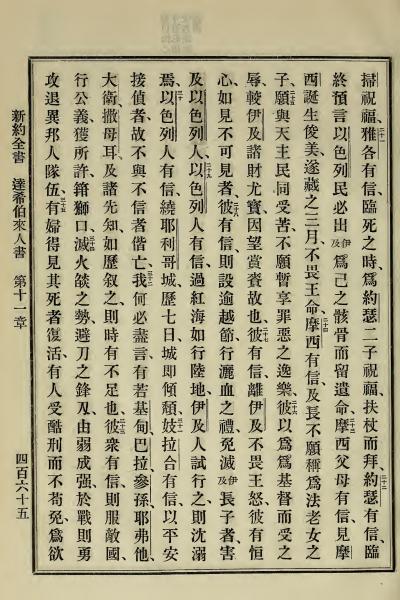 掃祝福、雅各有信、臨死之時、爲約瑟二子祝福、扶杖而拜、約瑟有信、臨
二十一
二十二
終預言以色列民必出伊及、爲己之骸骨而留遺命、摩西父母有信、見摩
二十三
西誕生俊美、遂藏之三月、不畏王命、摩西有信、及長不願稱爲法老女之
二十四
子、願與天主民同受苦、不願暫享罪惡之逸樂、彼以爲爲基督而受之
二十五
二十六
辱、較伊及諸財尤寳、因望賞賚故也、彼有信離伊及不畏王怒、彼有恒
二十七
心、如見不可見者、彼有信則設逾越節、行灑血之禮、免滅伊及長子者害
二十八
及以色列人、以色列人有信、過紅海如行陸地、伊及人試行之則沈溺
二十九
焉、以色列人有信、繞耶利哥城歷七日、城即傾頹、妓拉合有信、以平安
三十
三十一
接偵者、故不與不信者偕亡、我何必盡言有若基甸、巴拉、參孫、耶弗他、
三十二
大衛、撒母耳、及諸先知、如歷叙之、則時有不足也、彼衆有信、則服敵國、
三十三
行公義、獲所許、箝獅口、滅火燄之勢、避刀之鋒刄、由弱成强、於戰則勇、
三十四
攻退異邦人隊伍、有婦得見其死者復活、有人受酷刑而不苟免、爲欲
三十五
新約全書 達希伯來人書 第十一章 四百六十五